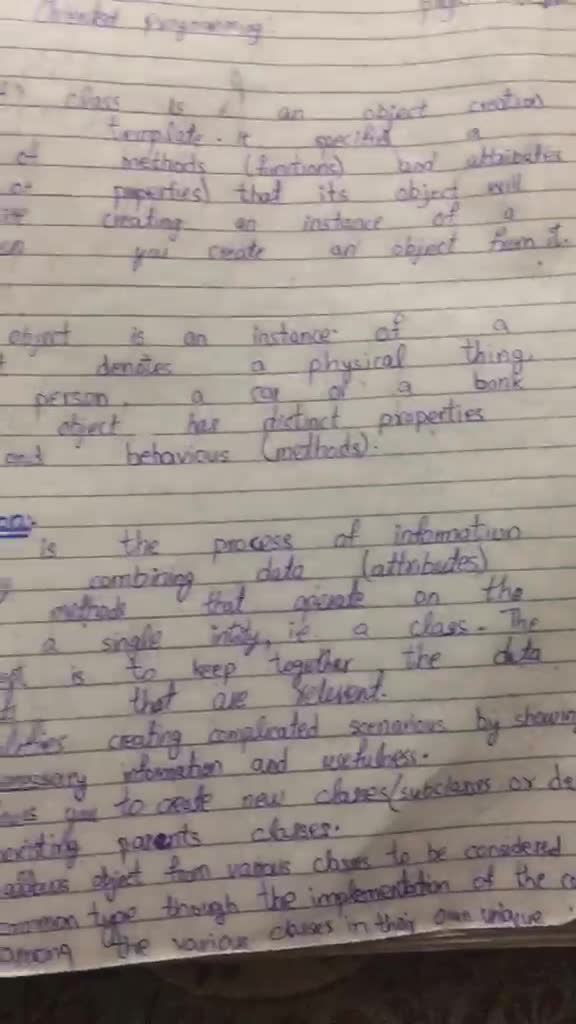 Programming
class is an object creation
template. It specified a
of methods (functions) and attributes
or properties) that its object will
creating an instance of a
you create an object from it.
object is an instance of a
denotes a physical thing,
person, a car or a bank
object has distinct properties
and behaviours (methods).
on:
is the process of information
combining data (attributes)
methods that operate on the
a single intity, ie a class. The
is to keep together, the data
that are relevent.
creating complicated scenarious by showing
information and usefulness.
you to create new classes/subclasses or de
existing parents classes.
object from various classes to be considered
common type though the implementation of the co
among the various classes in their own unique